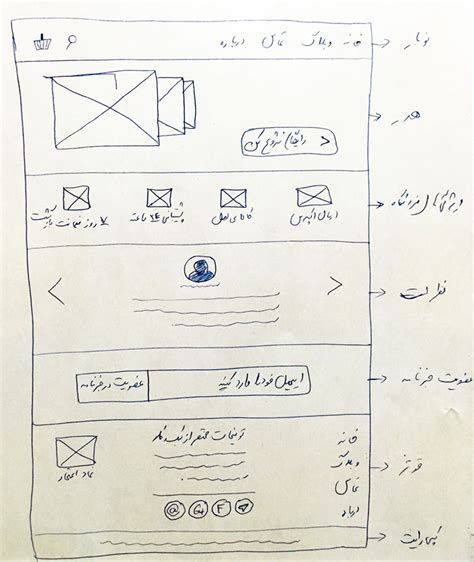 خانه وبلاگ تماس درباره
نوبار
هدر
رایگان شروع کن
ارسال اکسپرس
کالای اصل
پشتیبانی ۲۴ ساعته
۷ روز ضمانت بازگشت
ویژگی‌های فروشگاه
نظرات
ایمیل خود را وارد کنید
عضویت در خبرنامه
عضویت خبرنامه
خانه
وبلاگ
تماس
درباره
توضیحات مختصر از کسب و کار
@ G+ F
نماد اعتماد
فوتر
کپی رایت